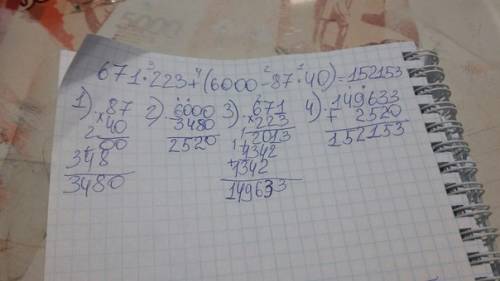 671·223+(6000-87·40)=152153
3 4 2 1
1). 87 2). 6000 3). 671 4). 149633
×40 3480 ×223 + 2520
2 00 2520 2013 152153
+348 1342
3480 +1342
149633